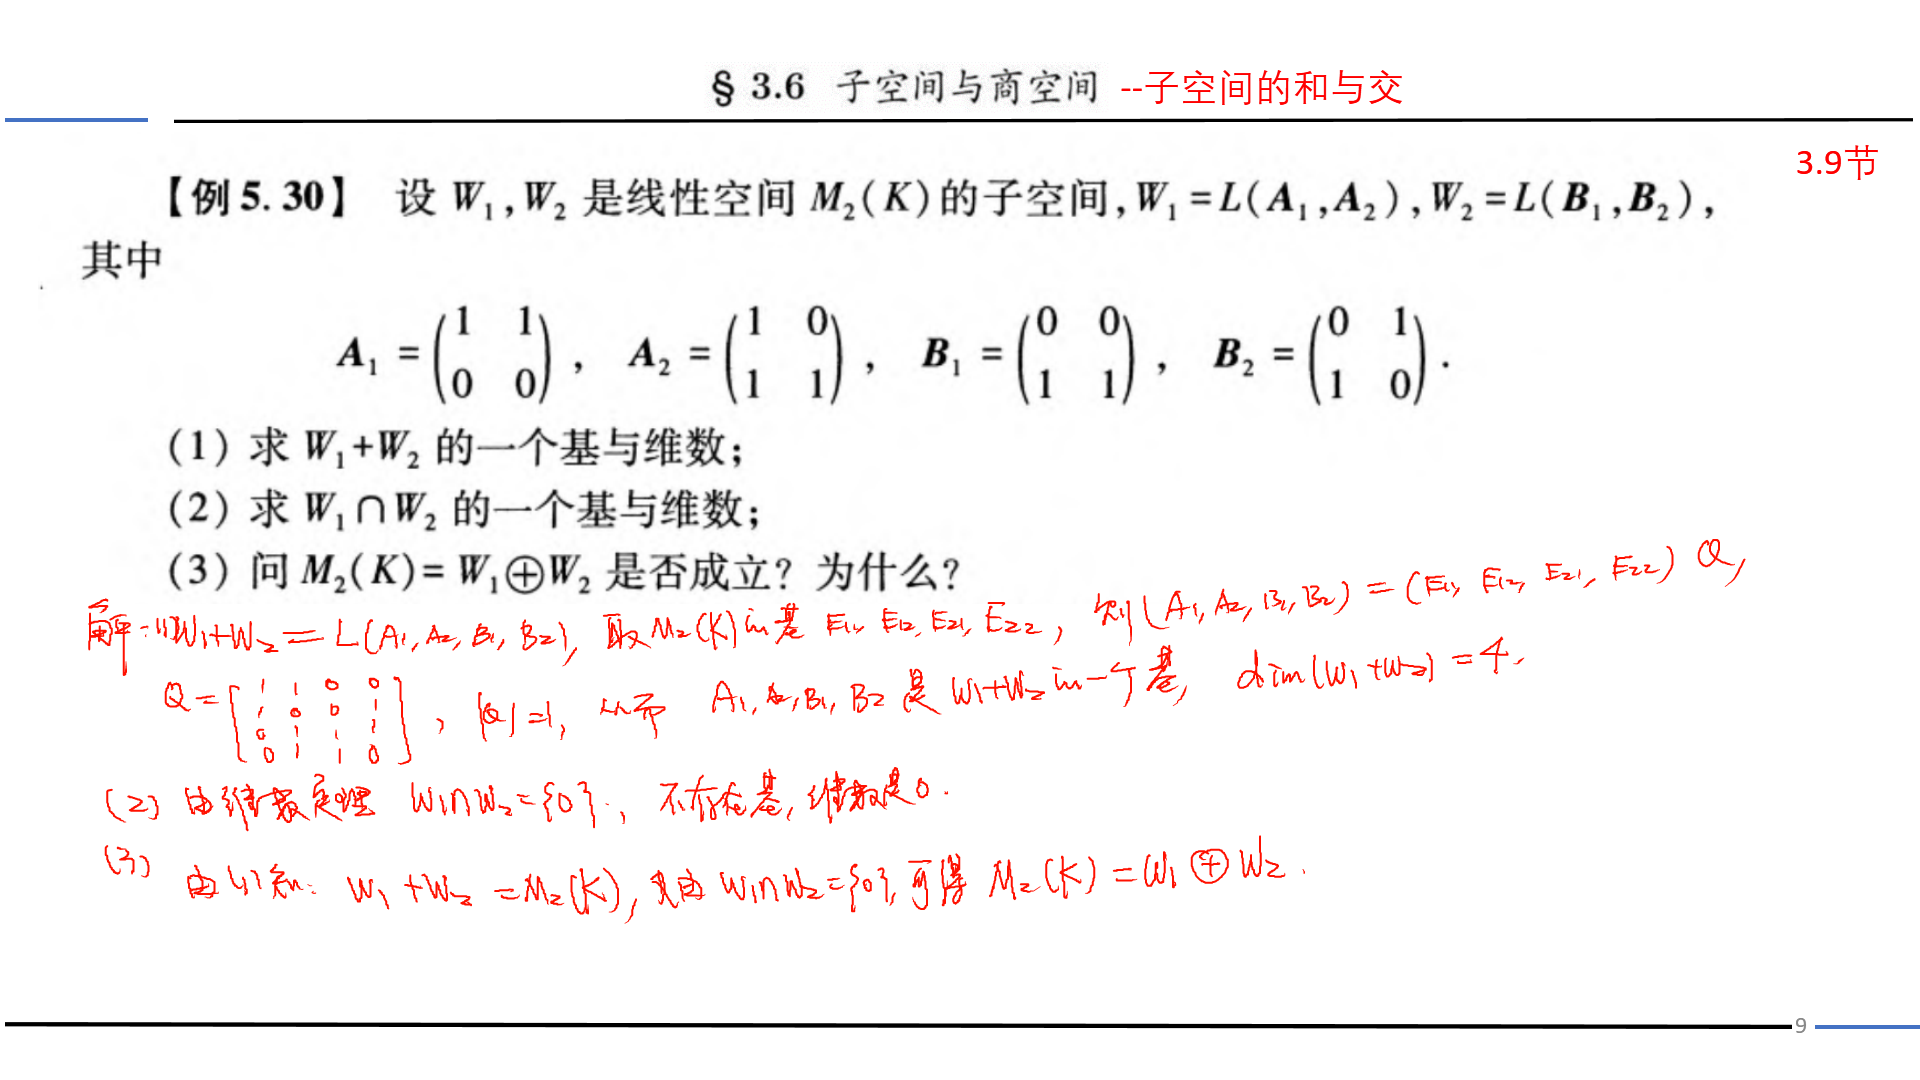 § 3.6 子空间与商空间 --子空间的和与交
3.9节
【例 5.30】 设 W₁,W₂ 是线性空间 M₂(K)的子空间,W₁=L(A₁,A₂),W₂=L(B₁,B₂),
其中
A₁ = (1 1; 0 0), A₂ = (1 0; 1 1), B₁ = (0 0; 1 1), B₂ = (0 1; 1 0).
(1) 求 W₁+W₂ 的一个基与维数;
(2) 求 W₁∩W₂ 的一个基与维数;
(3) 问 M₂(K)= W₁⊕W₂ 是否成立? 为什么?
解:(1)W₁+W₂ = L(A₁,A₂,B₁,B₂), 取 M₂(K)的基 E₁₁, E₁₂, E₂₁, E₂₂, 则(A₁,A₂,B₁,B₂)=(E₁₁, E₁₂, E₂₁, E₂₂) Q,
Q=[1 1 0 0; 1 0 0 1; 0 1 1 1; 0 1 1 0], |Q|=1, 从而 A₁,A₂,B₁,B₂ 是 W₁+W₂的一个基, dim(W₁+W₂)=4.
(2) 由维数定理 W₁∩W₂={0}, 不存在基,维数是0.
(3) 由(1)知: W₁+W₂=M₂(K),又由 W₁∩W₂={0},可得 M₂(K)=W₁⊕W₂.
9